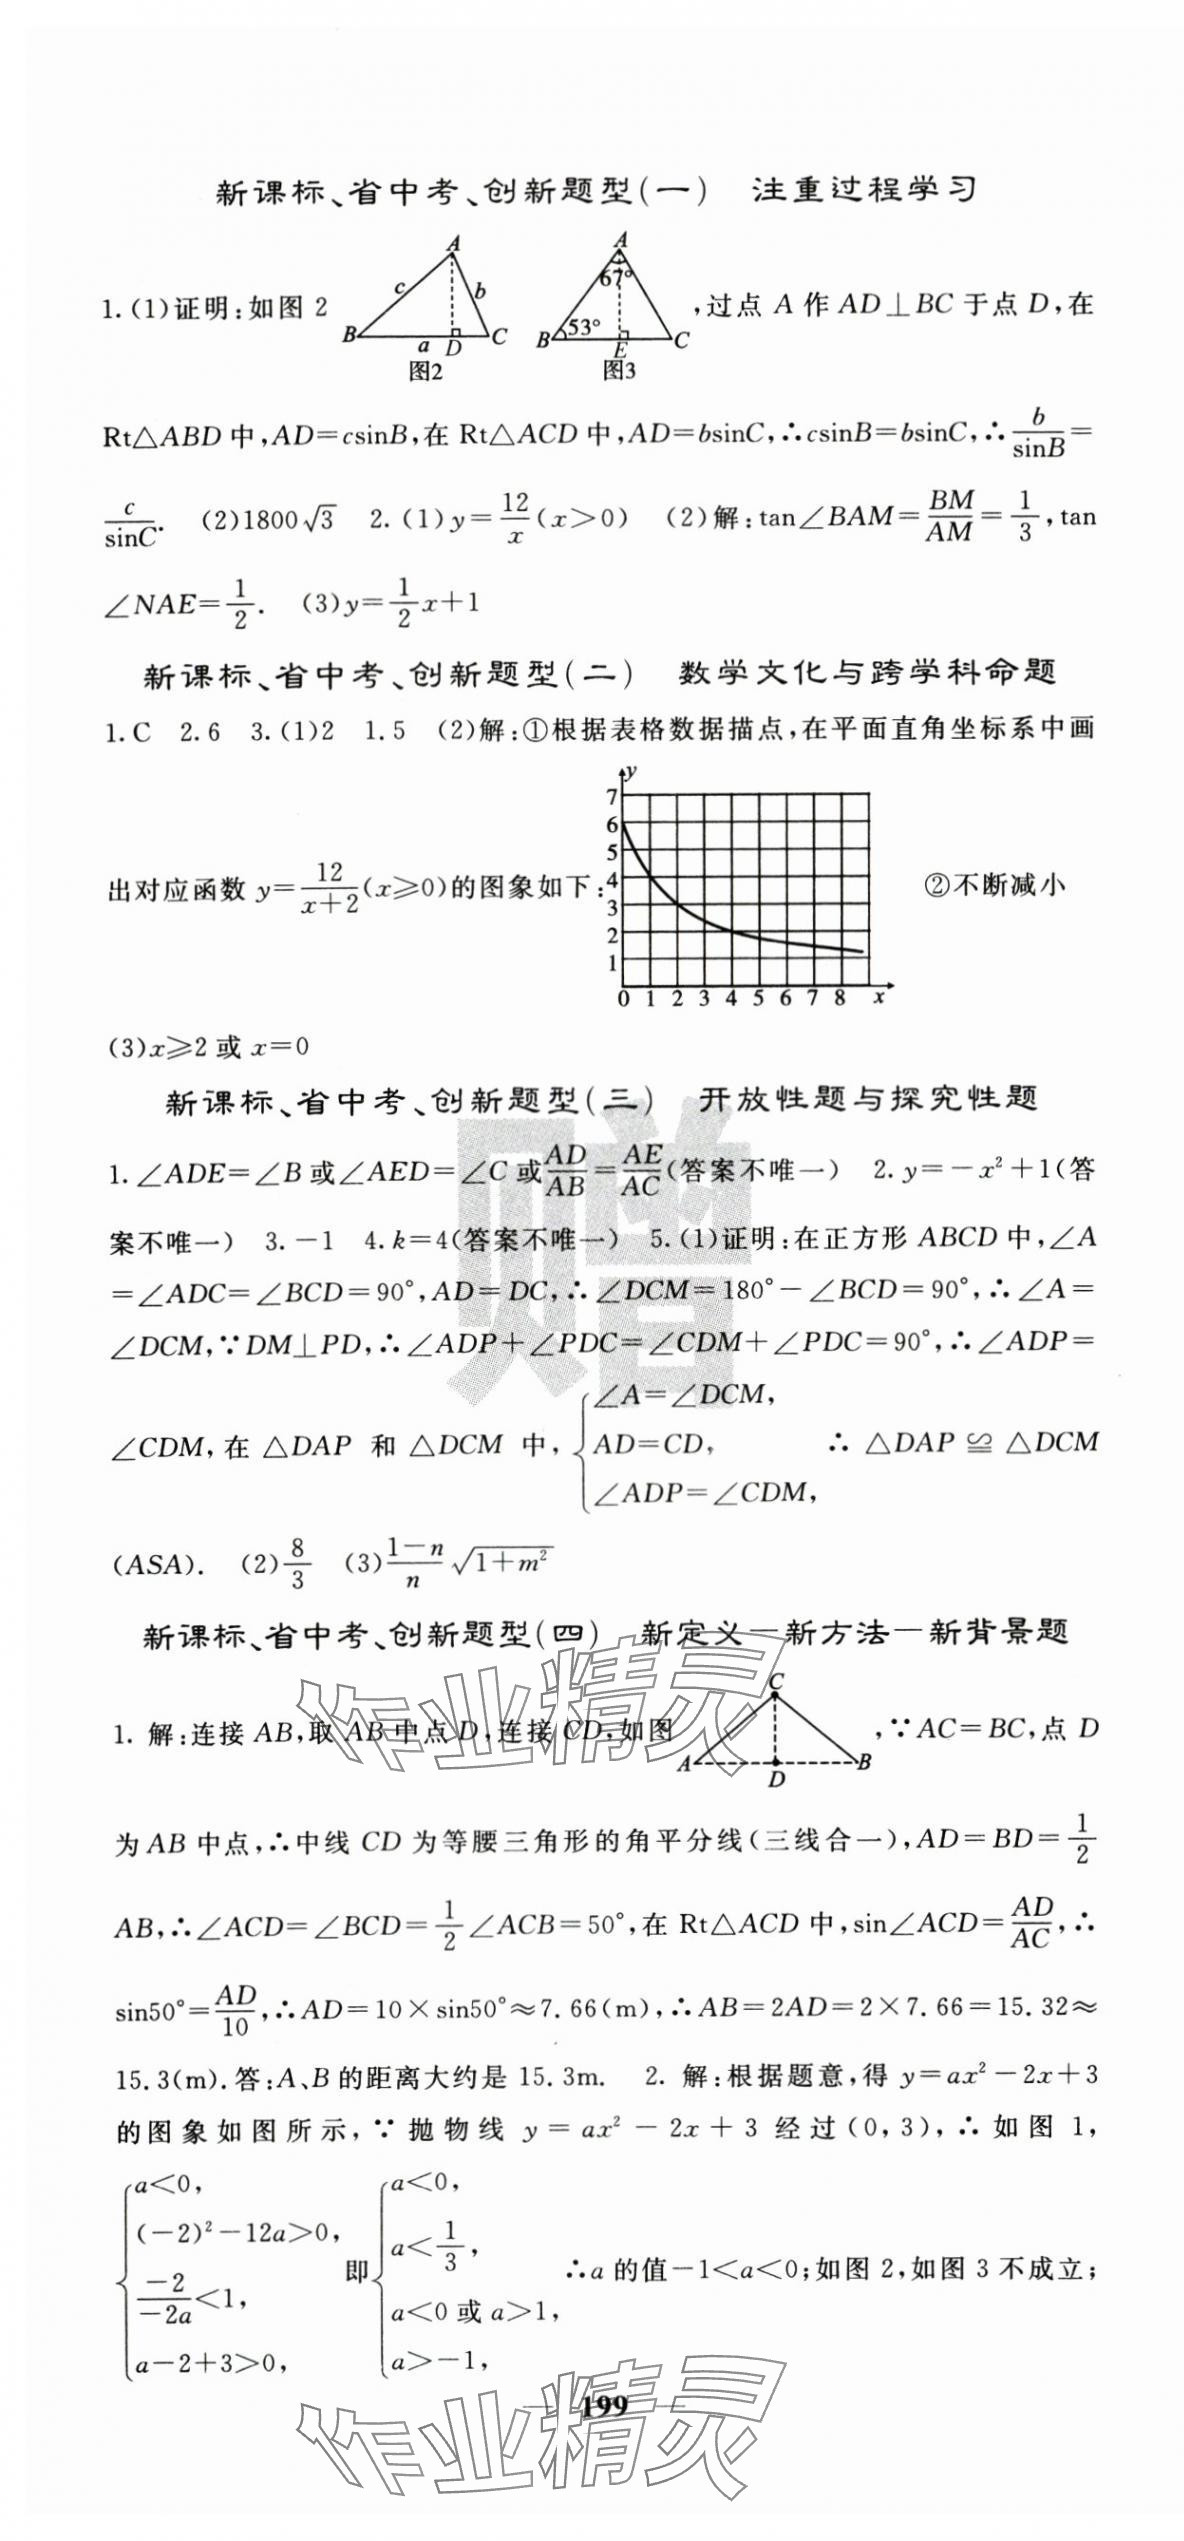 新课标、省中考、创新题型(一) 注重过程学习
1.(1)证明:如图 2 A c b B a D C 图2 A 67° 53° B E C 图3 ,过点 A 作 AD⊥BC 于点 D,在
Rt△ABD 中,AD=csinB,在 Rt△ACD 中,AD=bsinC,∴csinB=bsinC,∴b/sinB=
c/sinC. (2)1800√3 2.(1)y=12/x(x>0) (2)解:tan∠BAM=BM/AM=1/3,tan
∠NAE=1/2. (3)y=1/2x+1
新课标、省中考、创新题型(二) 数学文化与跨学科命题
1.C 2.6 3.(1)2 1.5 (2)解:①根据表格数据描点,在平面直角坐标系中画
出对应函数 y=12/(x+2)(x≥0)的图象如下: y 7 6 5 4 3 2 1 0 1 2 3 4 5 6 7 8 x ②不断减小
(3)x≥2 或 x=0
新课标、省中考、创新题型(三) 开放性题与探究性题
1.∠ADE=∠B或∠AED=∠C或AD/AB=AE/AC(答案不唯一) 2.y=-x²+1(答
案不唯一) 3.-1 4.k=4(答案不唯一) 5.(1)证明:在正方形 ABCD 中,∠A
=∠ADC=∠BCD=90°,AD=DC,∴∠DCM=180°-∠BCD=90°,∴∠A=
∠DCM,∵DM⊥PD,∴∠ADP+∠PDC=∠CDM+∠PDC=90°,∴∠ADP=
∠CDM,在 △DAP 和 △DCM 中,{∠A=∠DCM, AD=CD, ∠ADP=∠CDM, ∴ △DAP ≌ △DCM
(ASA). (2)8/3 (3)(1-n)/n √(1+m²)
赠
新课标、省中考、创新题型(四) 新定义—新方法—新背景题
1. 解:连接 AB,取 AB 中点 D,连接 CD,如图 C A D B ,∵AC=BC,点 D
为 AB 中点,∴中线 CD 为等腰三角形的角平分线(三线合一),AD=BD=1/2
AB,∴∠ACD=∠BCD=1/2∠ACB=50°,在 Rt△ACD 中,sin∠ACD=AD/AC,∴
sin50°=AD/10,∴AD=10×sin50°≈7.66(m),∴AB=2AD=2×7.66=15.32≈
15.3(m).答:A、B的距离大约是 15.3m. 2. 解:根据题意,得 y=ax²-2x+3
的图象如图所示,∵抛物线 y=ax²-2x+3 经过(0,3),∴如图 1,
{a<0, (-2)²-12a>0, -2/-2a<1, a-2+3>0, 即{a<0, a<1/3, a<0 或 a>1, a>-1, ∴a 的值-1<a<0;如图 2,如图 3 不成立;
199
作业精灵
作业精灵